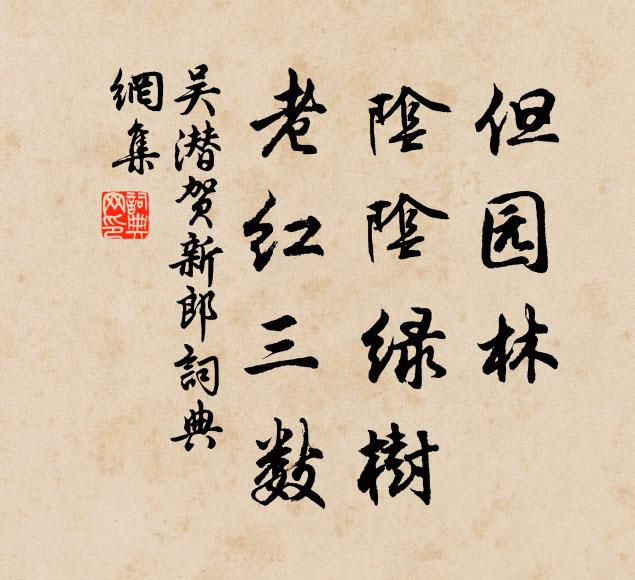 但园林
陰陰绿樹
老红三数
吴潜贺新郎詞典
網集
詞典
网印